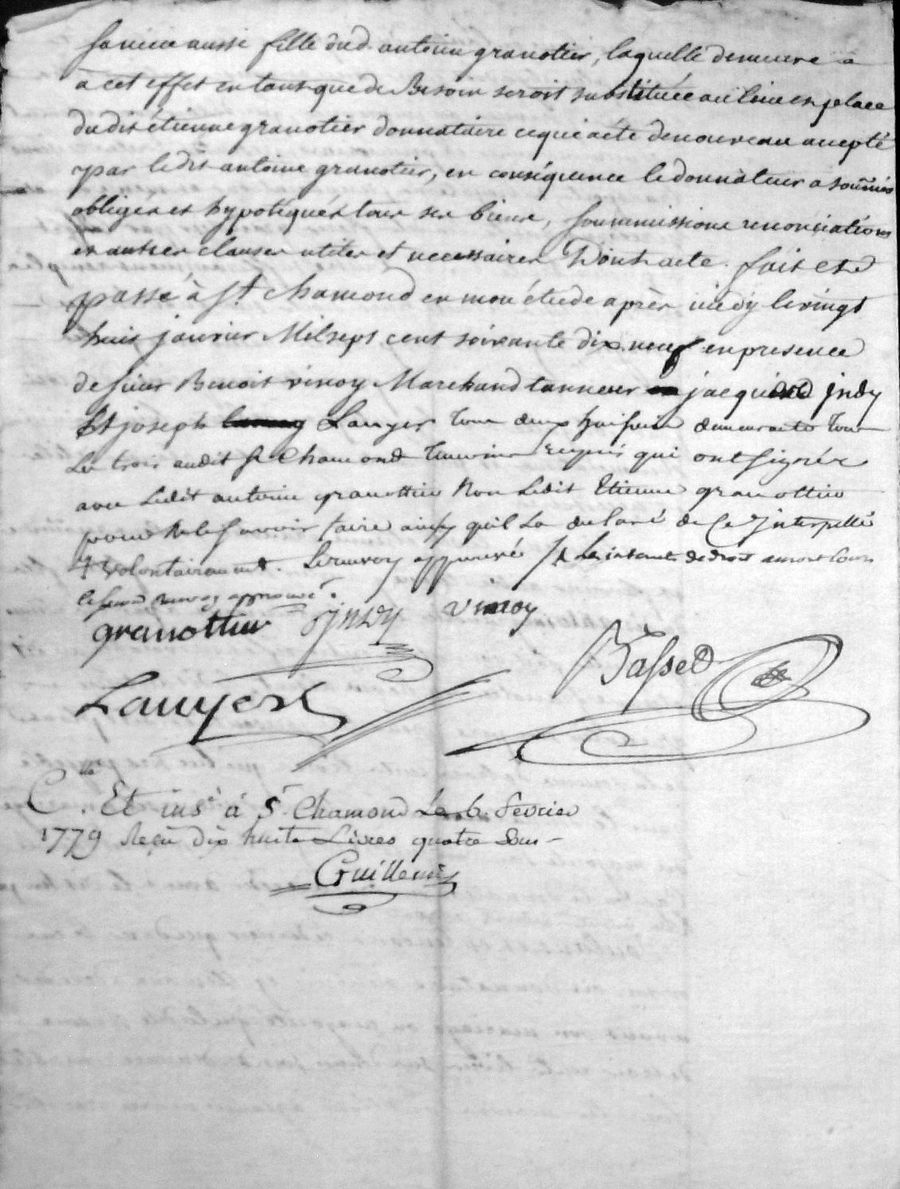 sa niece aussi fille dud. antoine granotier, laquelle demeure a
a cet effet en tant que de Besoin seroit substituée au lieu et place
du dit étienne granotier donnataire ce qui a été de nouveau accepté
par ledit antoine granotier, en conséquence le donnateur a soûmis
obligés et hypotéqués tous ses biens, soummissions renonciations
et autres clauses utiles et necessaires Dont acte. fait et
passé à St. chamond en mon étude après midy le vingt
huit janvier Mil sept cent soixante dix neuf en presence
de sieur Benoit vinoy Marchand tanneur jacques jndy
Et joseph Lauyer tous deux huissiers demeurants tous
Les trois audit St Chamond temoins Requis qui ont signés
avec Ledit antoine granottier Non Ledit Etienne granottier
pour ne le sçavoir faire ainsy qu'il La declaré de Ce Interpellé
volontairement. Le renvoy approuvé de droit
le second renvoy approuvé.
granottier jndy vinoy
Basset
Lauyer
C.lle Et ins.é à St Chamond Le 6. Fevrier
1779 Reçu dix huit Livres quatre sous
Guillemin